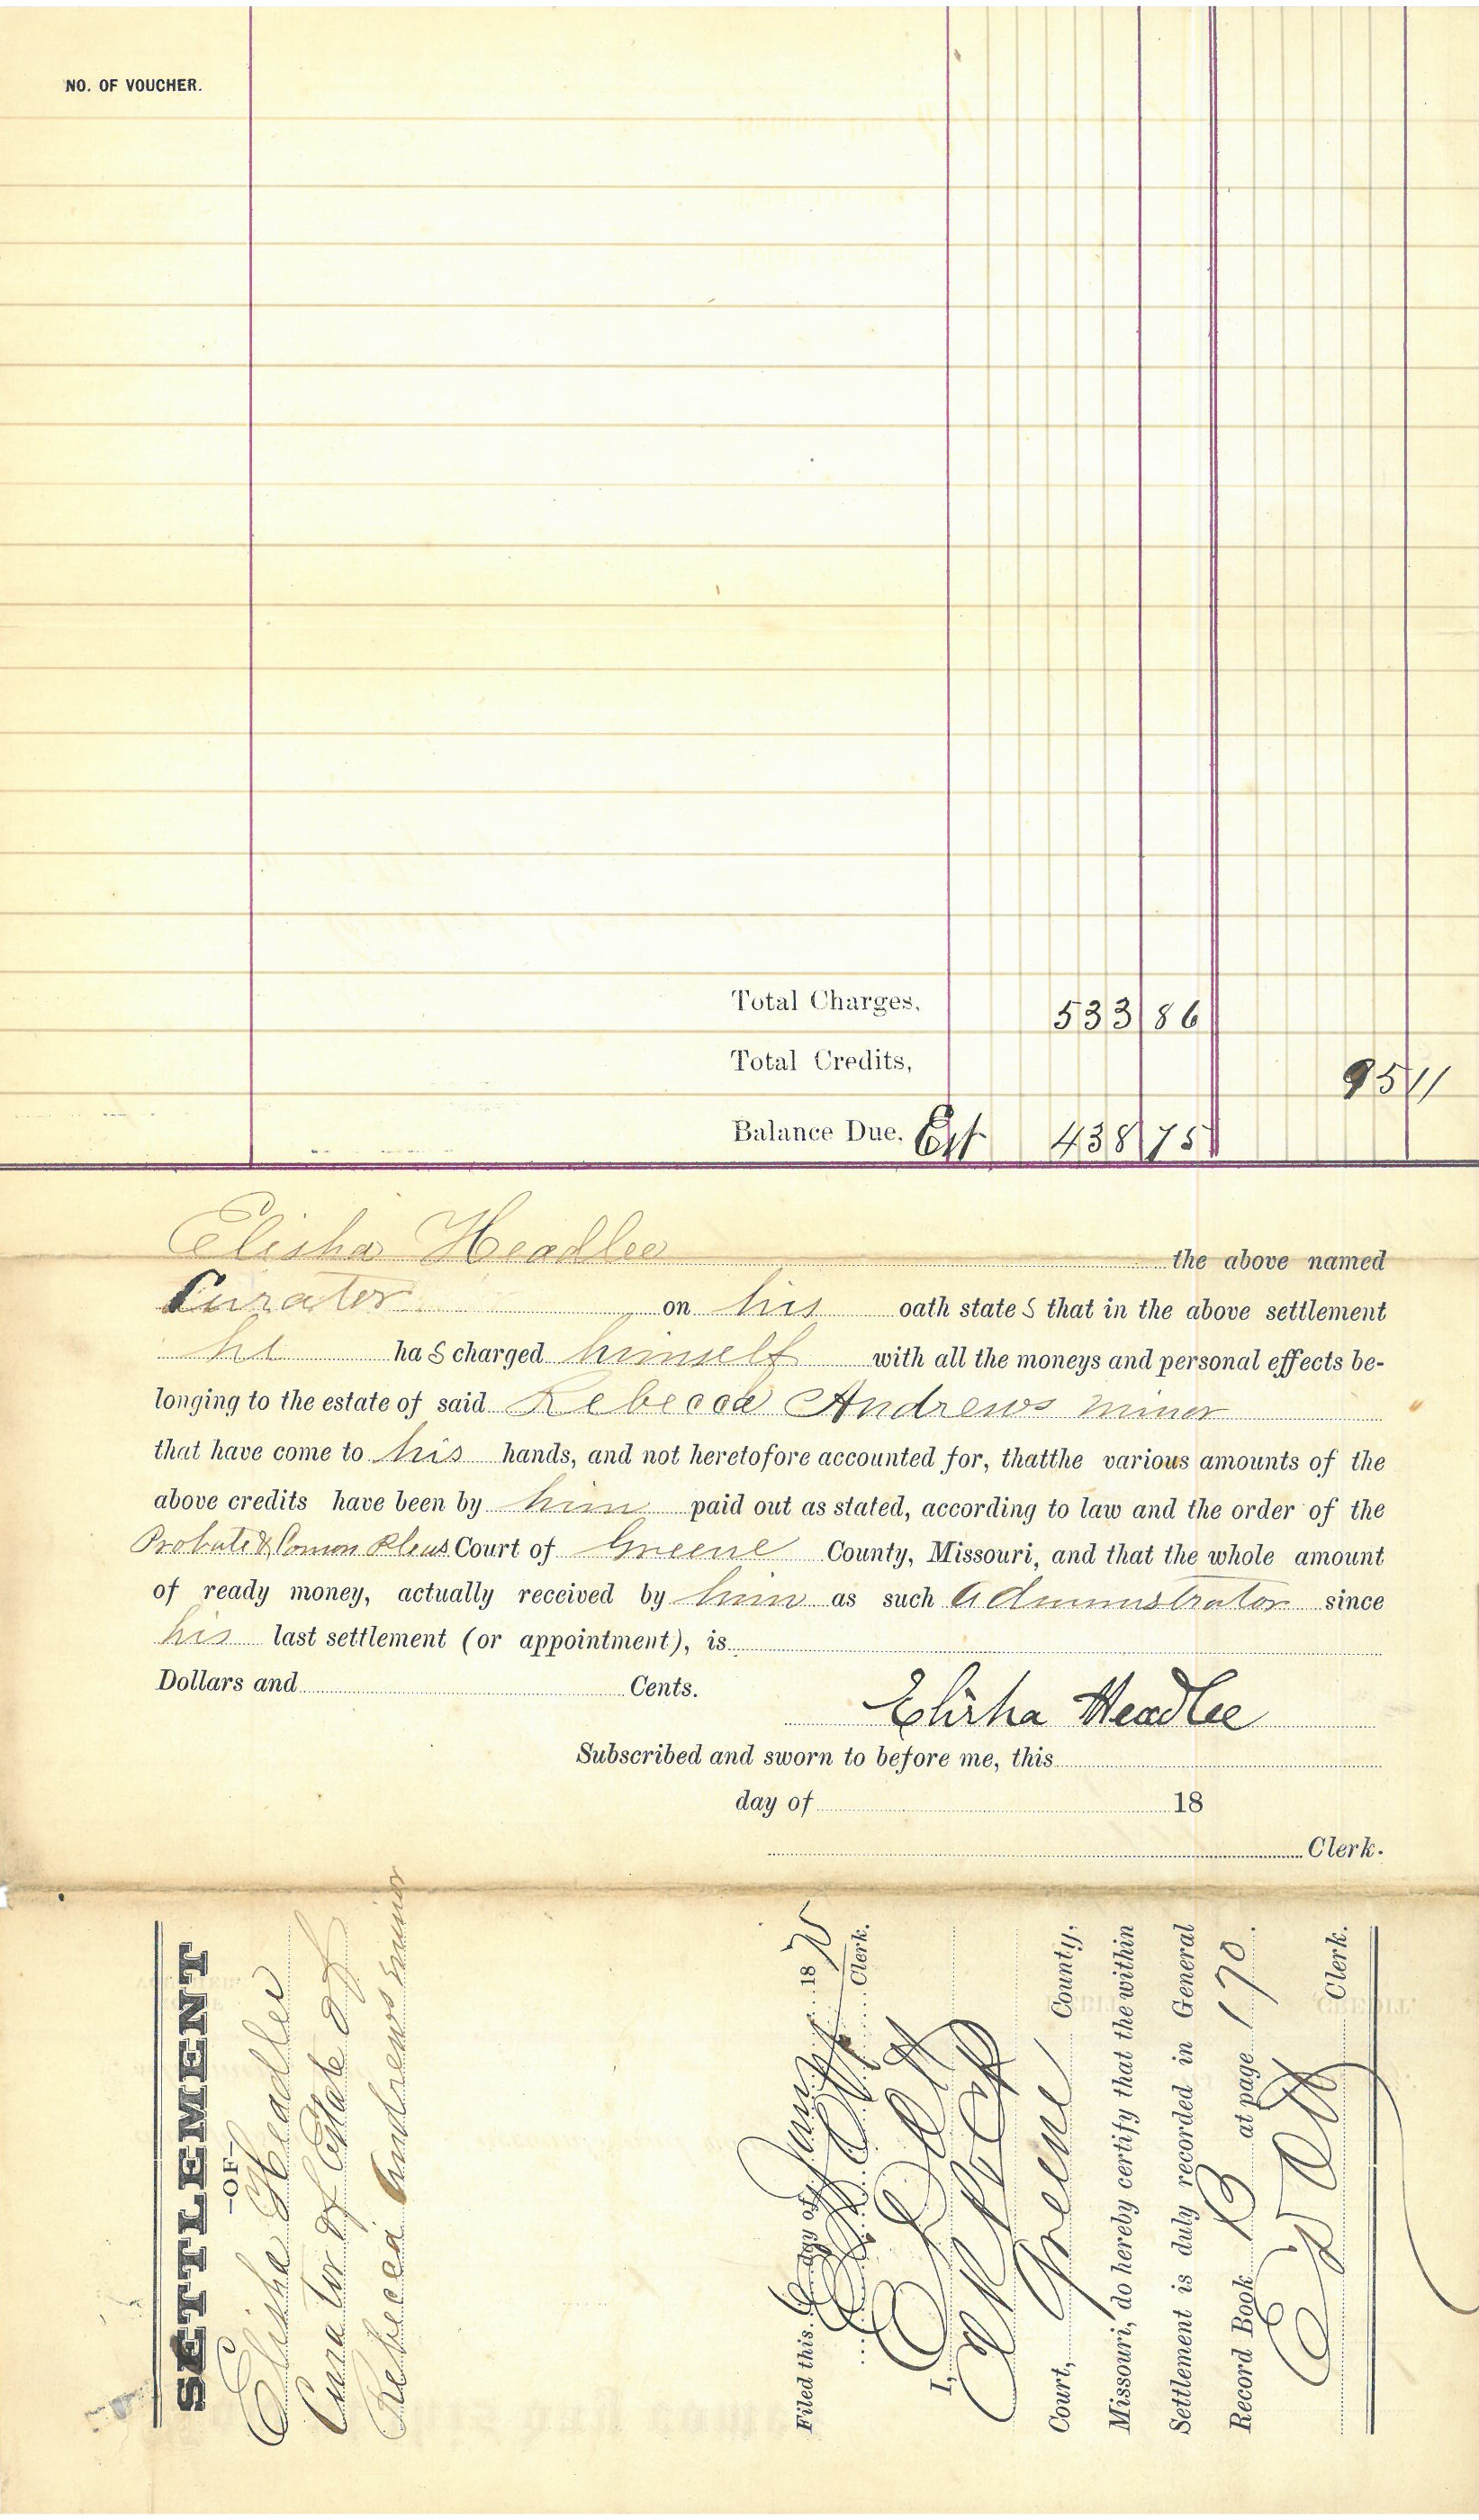 NO. OF VOUCHER.
Total Charges, 533 86
Total Credits, 95 11
Balance Due, Est 438 75
Elisha Headlee the above named
Curator on his oath state s that in the above settlement
he ha s charged himself with all the moneys and personal effects be-
longing to the estate of said Rebecca Andrews minor
that have come to his hands, and not heretofore accounted for, thatthe various amounts of the
above credits have been by him paid out as stated, according to law and the order of the
Probate & Comon Pleas Court of Greene County, Missouri, and that the whole amount
of ready money, actually received by him as such administrator since
his last settlement (or appointment), is
Dollars and Cents.
Elisha Headlee
Subscribed and sworn to before me, this
day of 18
Clerk.
SETTLEMENT
-OF-
Elisha Headlee
Curator of Estate of
Rebecca Andrews minor
Filed this 6 day of Jany 18
Clerk.
I,
Court, Greene County,
Missouri, do hereby certify that the within
Settlement is duly recorded in General
Record Book B at page 170.
Clerk.